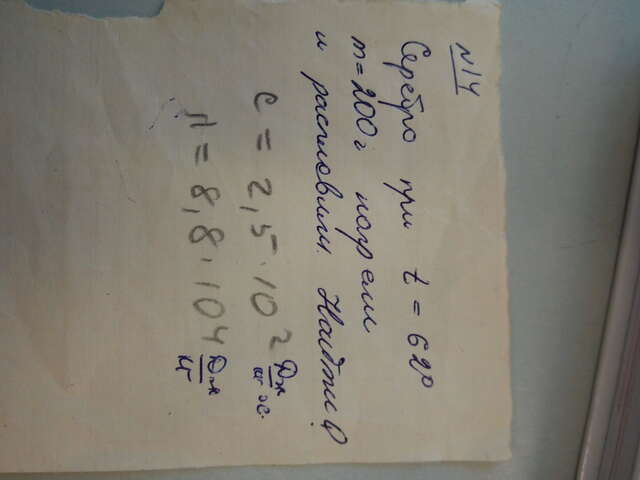 №14
Серебро при t = 62°
m = 200г нагрели
и расплавили. Найти Q
c = 2,5 · 10² Дж/кг °С.
λ = 8,8 · 10⁴ Дж/кг